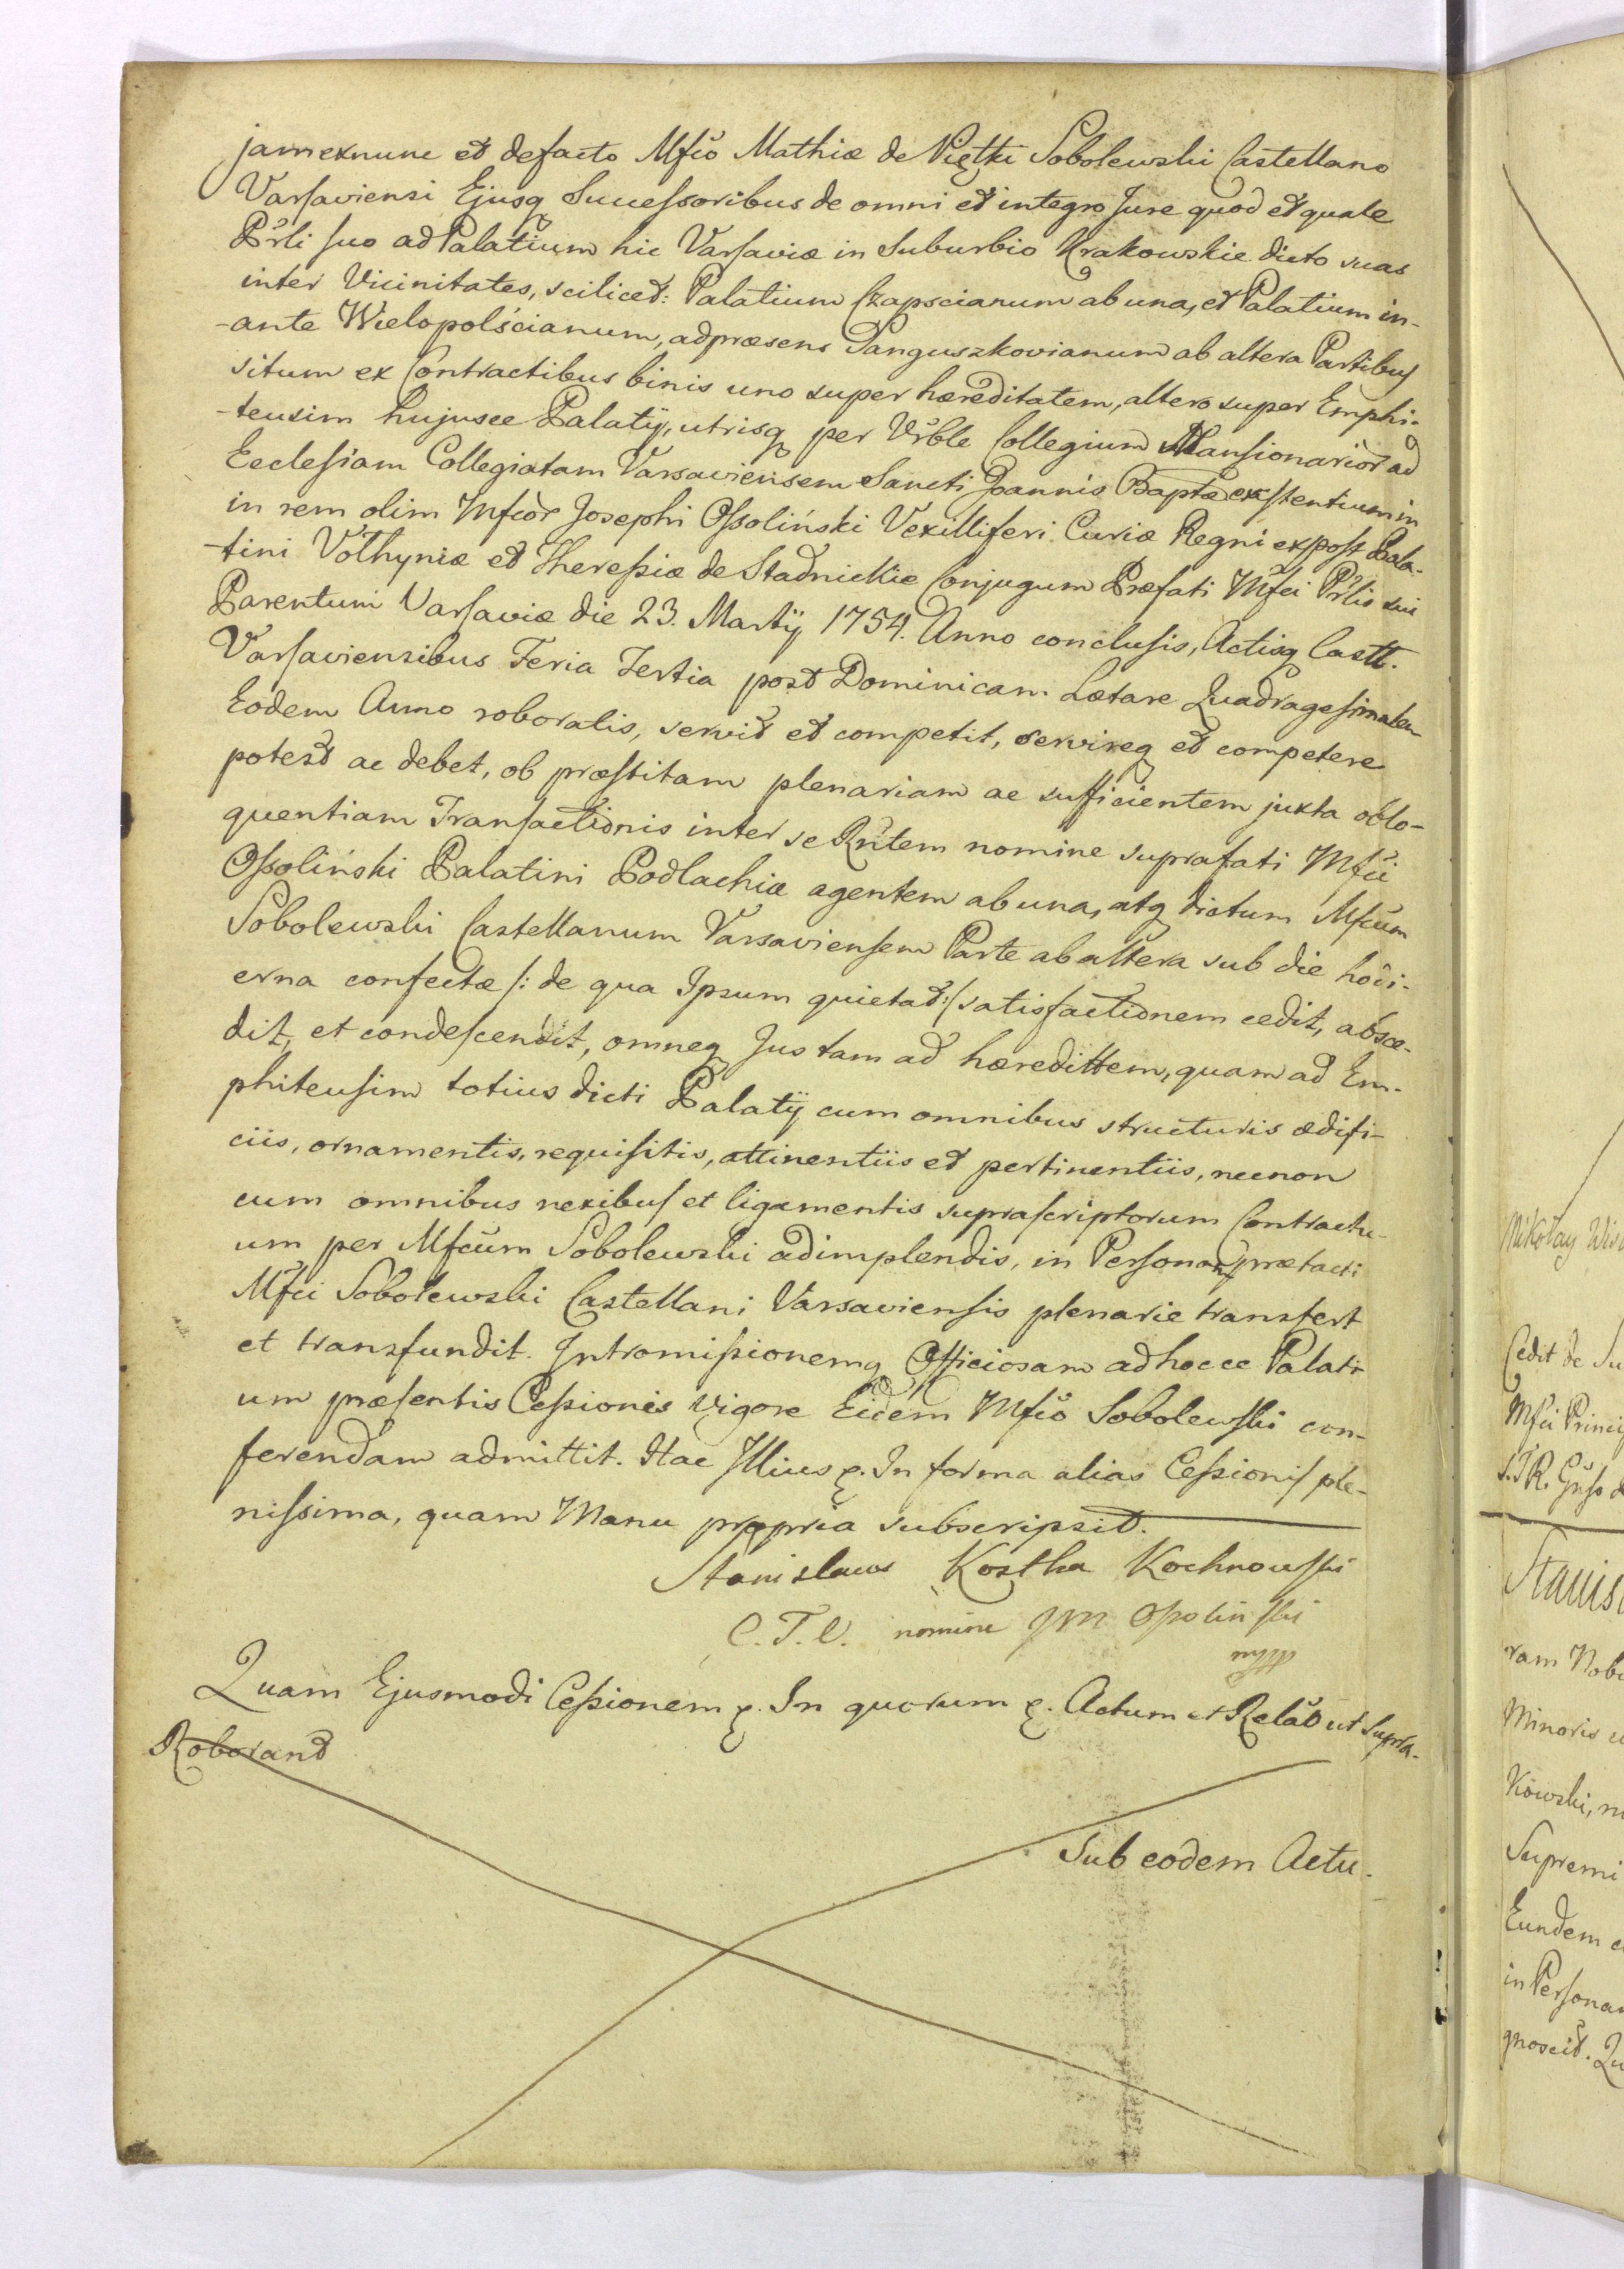 jamexnunc et defacto Mfco Mathiæ de Piętki Sobolewski Castellano
Varsaviensi Ejusq Successoribus de omni et integro Jure quod et quale
Prli suo ad Palatium hic Varsaviæ in Suburbio Krakowskie dicto suas
inter Vicinitates, scilicet: Palatium Czapscianum ab una, et Palatium in-
-ante Wielopolścianum, adpræsens Sanguszkovianum ab altera Partibus
situm ex Contractibus binis uno super hæreditatem, altero super Emphi-
-teusim hujusce Palatÿ, utrisq per Vrble Collegium Mansionarior ad
Ecclesiam Collegiatam Varsaviensem Sancti Joannis Baptæ existentium in
in rem olim Mfcor Josephi Ossoliński Vexilliferi Curiæ Regni expost Pala-
-tini Volhyniæ et Theressiæ de Stadnickie Conjugum Præfati Mfci Prlis sui
Parentum Varsaviæ die 23. Martÿ 1754. Anno conclusis, Actisq Castt.
Varsaviensibus Feria Tertia post Dominicam Lætare Quadragesimalem
Eodem Anno roboratis, servit et competit, servireq et competere
potest ac debet, ob præstitam plenariam ac sufficientem juxta oblo-
quentiam Transactionis inter se Rntem nomine suprafati Mfci
Ossoliński Palatini Podlachiæ agentem ab una, atq dictum Mfcum
Sobolewski Castellanum Varsaviensem Parte ab altera sub die hodi-
erna confectæ /: de qua Ipsum quietat :/ satisfactionem cedit, absce-
dit, et condescendit, omneq Jus tam ad hæredittem, quam ad Em-
phiteusim totius dicti Palatÿ cum omnibus structuris ædifi-
ciis, ornamentis, requisitis, attinentiis et pertinentiis, necnon
cum omnibus nexibus et ligamentis suprascriptorum Contractu-
um per Mfcum Sobolewski adimplendis, in Personam prætacti
Mfci Sobolewski Castellani Varsaviensis plenarie transfert
et transfundit. Intromissionemq Officiosam ad hocce Palati
um præsentis Cessionis vigore Eidem Mfco Sobolewski con-
ferendam admittit. Hac Illius &. In forma alias Cessionis ple-
nissima, quam Manu propria subscripsit.
Stanislaus Kostka Kochnowski
C. T. C. nomine JM Ossolinski
Quam Ejusmodi Cessionem &. In quorum &. Actum et Relao ut supra.
Roborand
Sub eodem Actu.
Mikołay
Cedit de Su
Mfci Princi
Stanis
ram Nob
Minoris
Kowski,
Supremi
Eundem
in Persona
gnoscit. Qu